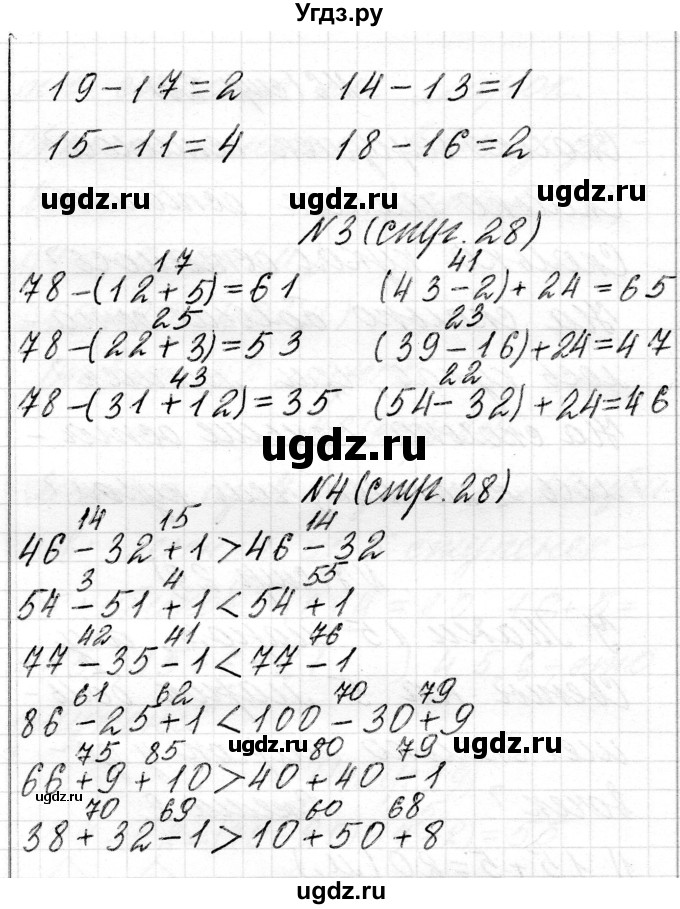 Угдз.ру
19-17=2 14-13=1
15-11=4 18-16=2
ugdz.ru ugdz.ru ugdz.ru
N3 (стр. 28)
17 41
78-(12+5)=61 (43-2)+24=65
25 23
78-(22+3)=53 (39-16)+24=47
43 22
78-(31+12)=35 (54-32)+24=46
ugdz.ru
N4 (стр. 28)
14 15 14
46-32+1>46-32
3 4 55
54-51+1<54+1
42 41 76
77-35-1<77-1
61 62 70 79
86-25+1<100-30+9
ugdz.ru ugdz.ru
75 85 80 79
66+9+10>40+40-1
ugdz.ru
70 69 60 68
38+32-1>10+50+8
ugdz.ru